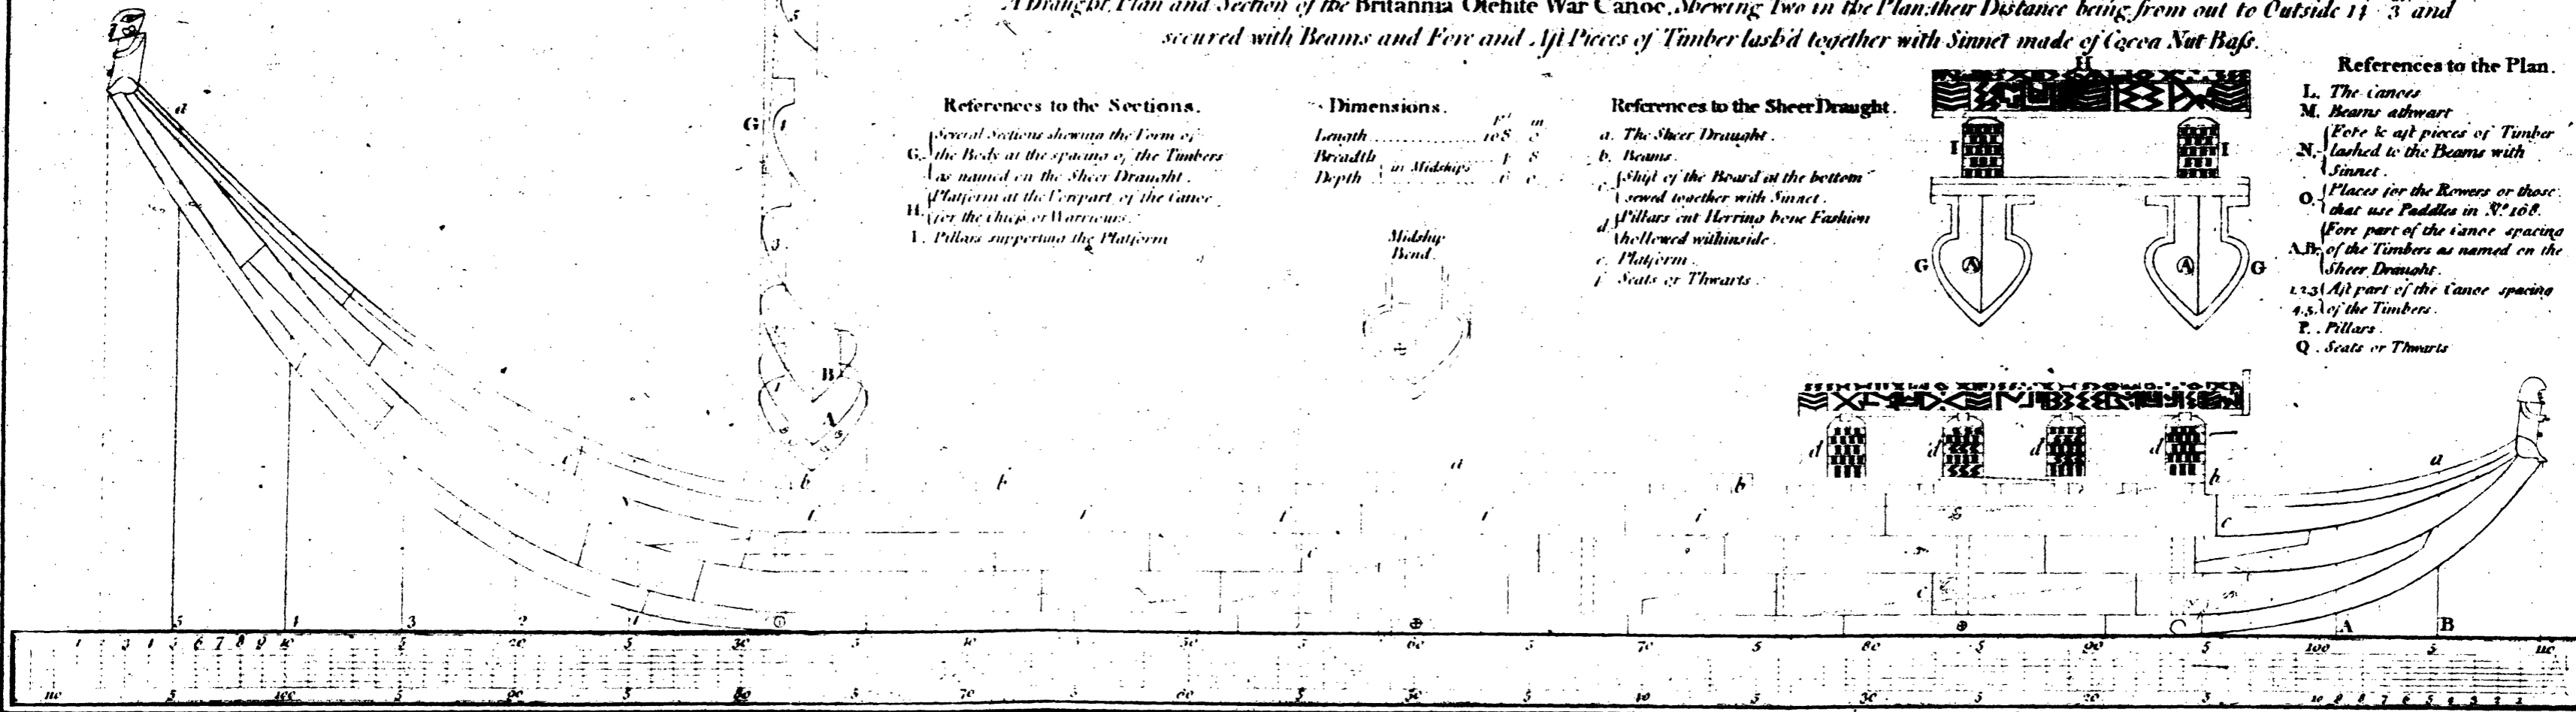 A Draught, Plan and Section of the Britannia Otehite War Canoe, Shewing Two in the Plan: their Distance being from out to Outside 14 3 and
secured with Beams and Fore and Aft Pieces of Timber lash'd together with Sinnet made of Cocoa Nut Bass.
References to the Sections.
G. Several Sections shewing the Form of
the Body at the spacing of the Timbers
as named on the Sheer Draught.
H. Platform at the Forepart of the Canoe
for the Chiefs or Warriours.
I. Pillars supporting the Platform
Dimensions.
Ft in
Length 108 0
Breadth 4 8
in Midships
Depth 6 0
Midship
Bend.
References to the Sheer Draught.
a. The Sheer Draught.
b. Beams.
c. Shift of the Board at the bottom
sewed together with Sinnet.
d. Pillars cut Herring bone Fashion
hollowed withinside.
e. Platform.
f. Seats or Thwarts.
References to the Plan.
L. The Canoes
M. Beams athwart
N. Fore & aft pieces of Timber
lashed to the Beams with
Sinnet.
O. Places for the Rowers or those
that use Paddles in No. 108.
A.B. Fore part of the Canoe spacing
of the Timbers as named on the
Sheer Draught.
1.2.3 Aft part of the Canoe spacing
4.5. of the Timbers.
P. Pillars.
Q. Seats or Thwarts
H
I I
G A A G
G
B
A
d d d d
a
b b b h
a a
5 4 3 2 1
A B
1 2 3 4 5 6 7 8 9 10 5 20 5 30 5 40 5 50 5 60 5 70 5 80 5 90 5 100 5 110
110 5 100 5 90 5 80 5 70 5 60 5 50 5 40 5 30 5 20 5 10 9 8 7 6 5 4 3 2 1